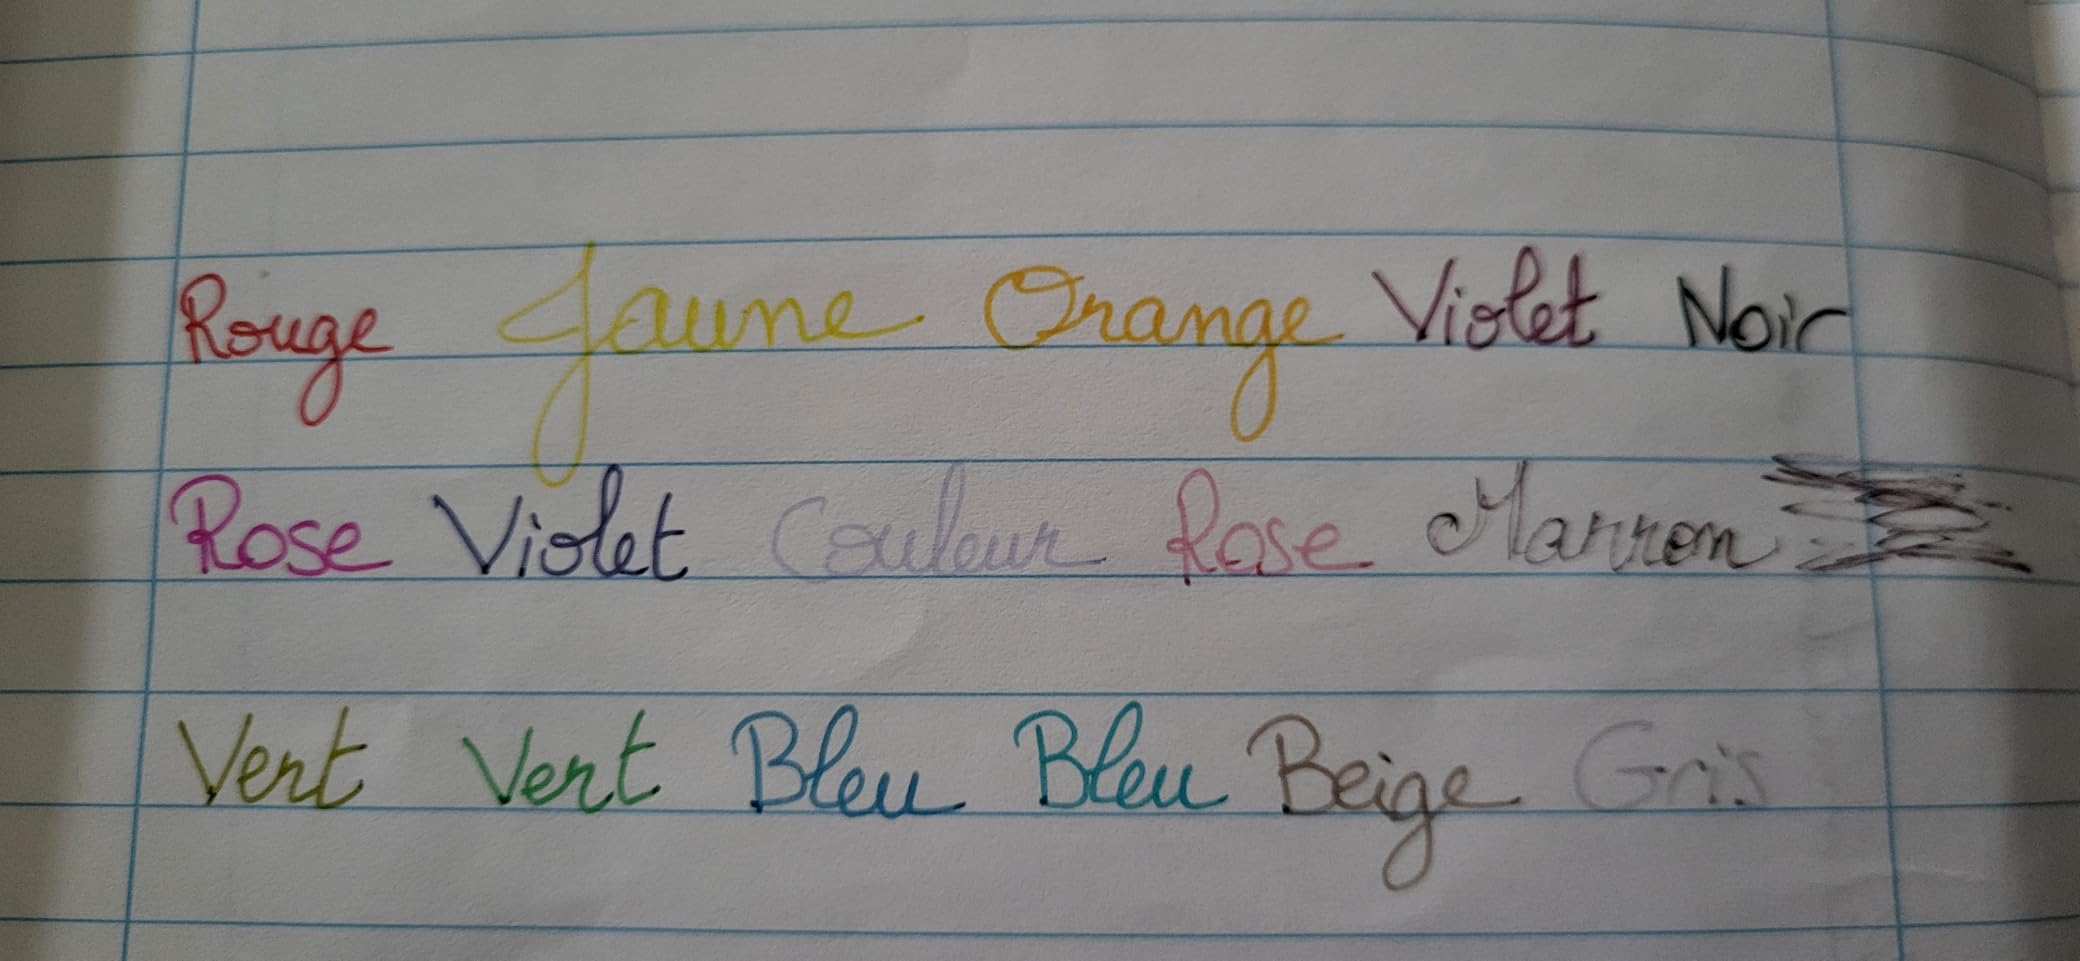 Rouge Jaune Orange Violet Noir
Rose Violet Couleur Rose Marron
Vert Vert Bleu Bleu Beige Gris